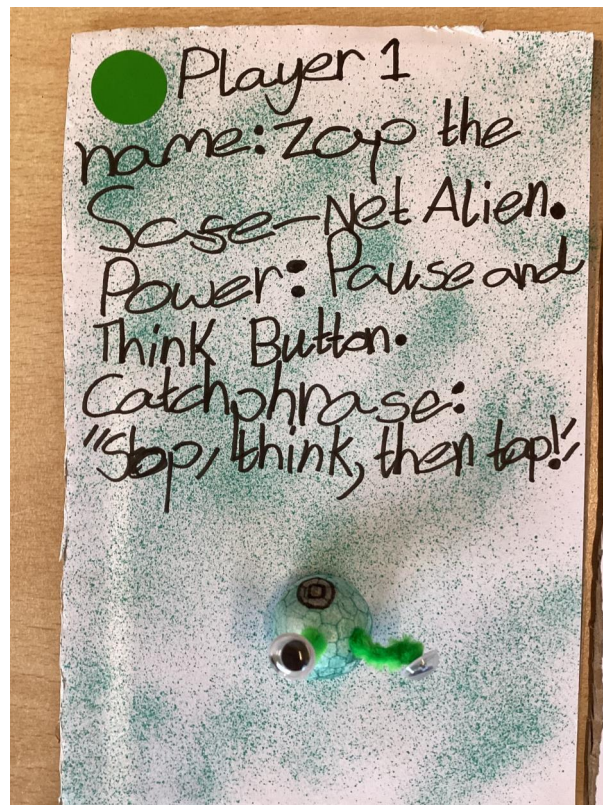 Player 1
name: Zap the
Safe-Net Alien.
Power: Pause and
Think Button.
Catchphrase:
"Stop, think, then tap!"